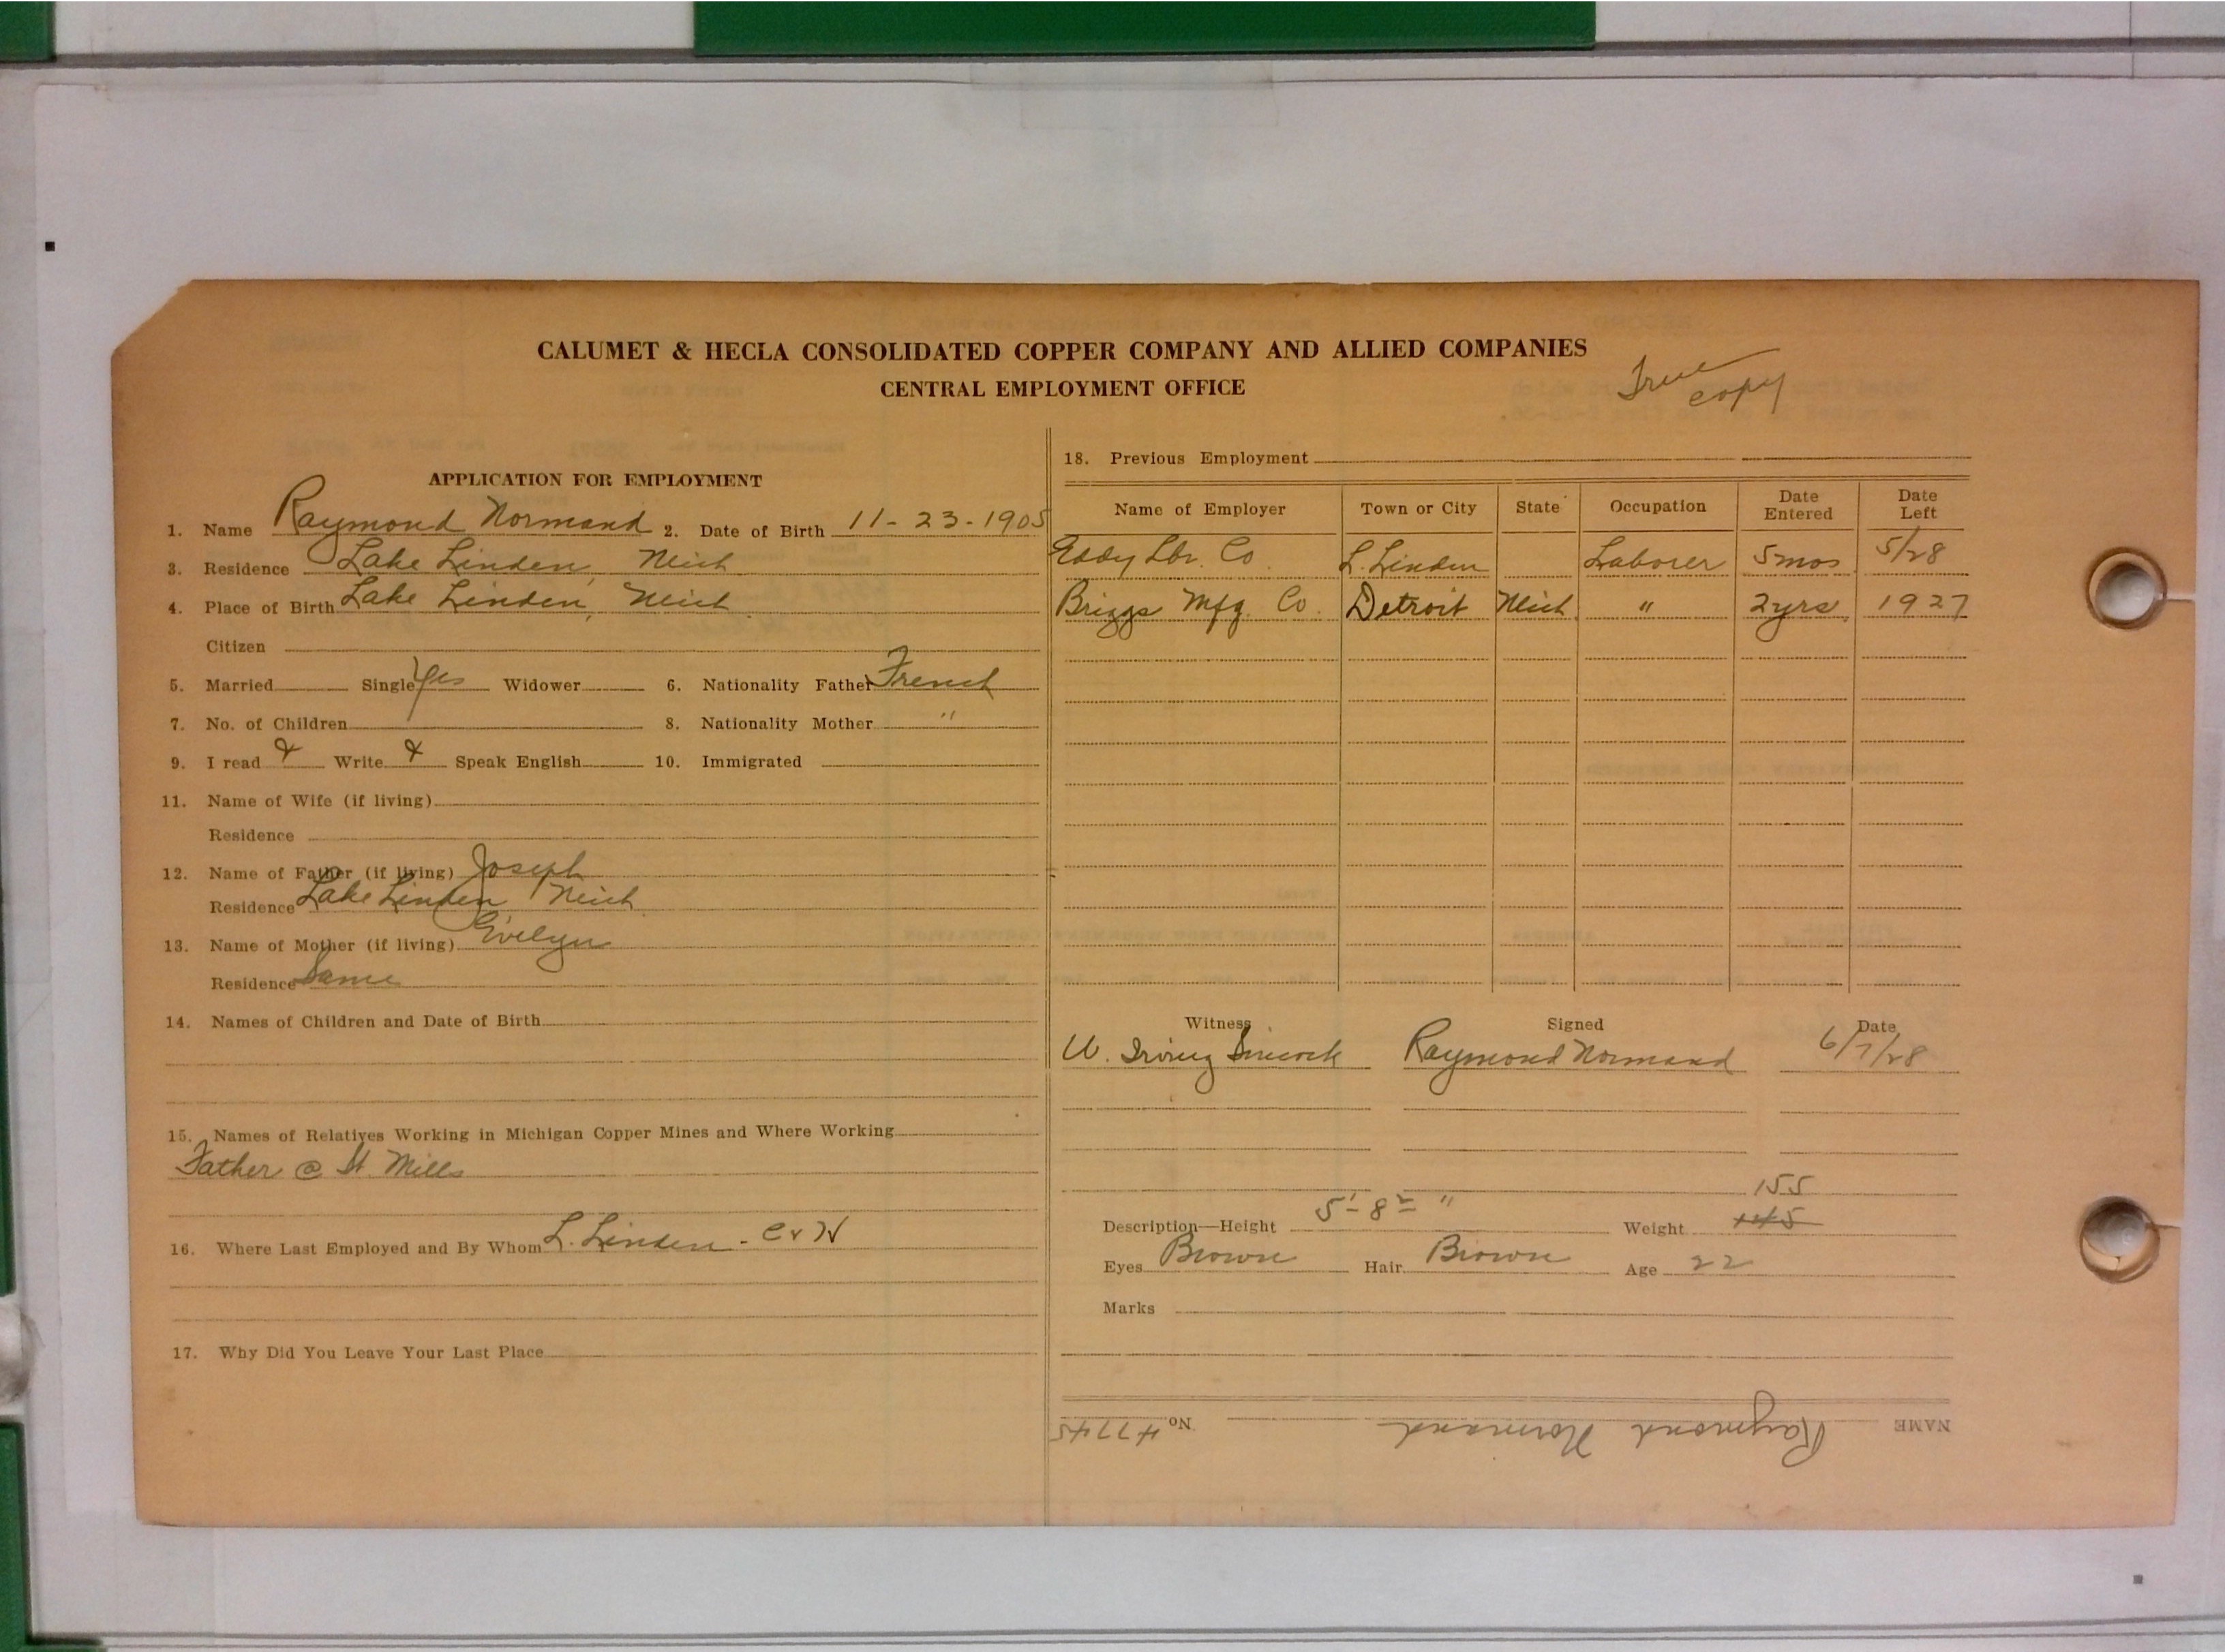 CALUMET & HECLA CONSOLIDATED COPPER COMPANY AND ALLIED COMPANIES
CENTRAL EMPLOYMENT OFFICE
True copy
APPLICATION FOR EMPLOYMENT
1. Name Raymond Normand 2. Date of Birth 11-23-1905
3. Residence Lake Linden, Mich
4. Place of Birth Lake Linden, Mich
Citizen
5. Married Single Yes Widower 6. Nationality Father French
7. No. of Children 8. Nationality Mother "
9. I read & Write & Speak English 10. Immigrated
11. Name of Wife (if living)
Residence
12. Name of Father (if living) Joseph
Residence Lake Linden, Mich
13. Name of Mother (if living) Evelyn
Residence Same
14. Names of Children and Date of Birth
15. Names of Relatives Working in Michigan Copper Mines and Where Working
Father @ St. Mills
16. Where Last Employed and By Whom L. Linden -
17. Why Did You Leave Your Last Place
18. Previous Employment
Name of Employer Town or City State Occupation Date Entered Date Left
Eddy Lbr. Co. L. Linden Laborer 5 mos 5/28
Briggs Mfg. Co. Detroit Mich " 2 yrs. 1927
Witness Signed Date
W. Irving Raymond Normand 6/7/28
155
Description—Height 5'-8" Weight 145
Eyes Brown Hair Brown Age 22
Marks
NAME Raymond Normand No. 47745